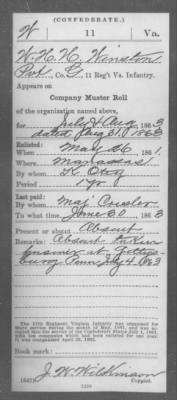 (CONFEDERATE.)
W 11 Va.
W. H. H. Winston
Pvt, Co. G, 11 Reg't Va. Infantry.
Appears on
Company Muster Roll
of the organization named above,
for July & Aug, 1863
dated Aug 31, 1863
Enlisted:
When May 26, 1861.
Where Manassas
By whom K. Otey
Period 1 yr
Last paid:
By whom Maj
To what time June 30, 1863
Present or absent Absent
Remarks: Absent taken
prisoner at Gettys-
burg Penn July 4 1863
The 11th Regiment Virginia Infantry was organized for
State service during the month of May, 1861, and was
into the service of the Confederate States July 1, 1861,
with ten companies which had been enlisted for one year.
It was reorganized April 26, 1862.
Book mark:
J. W. Wilkinson
(642) Copyist.